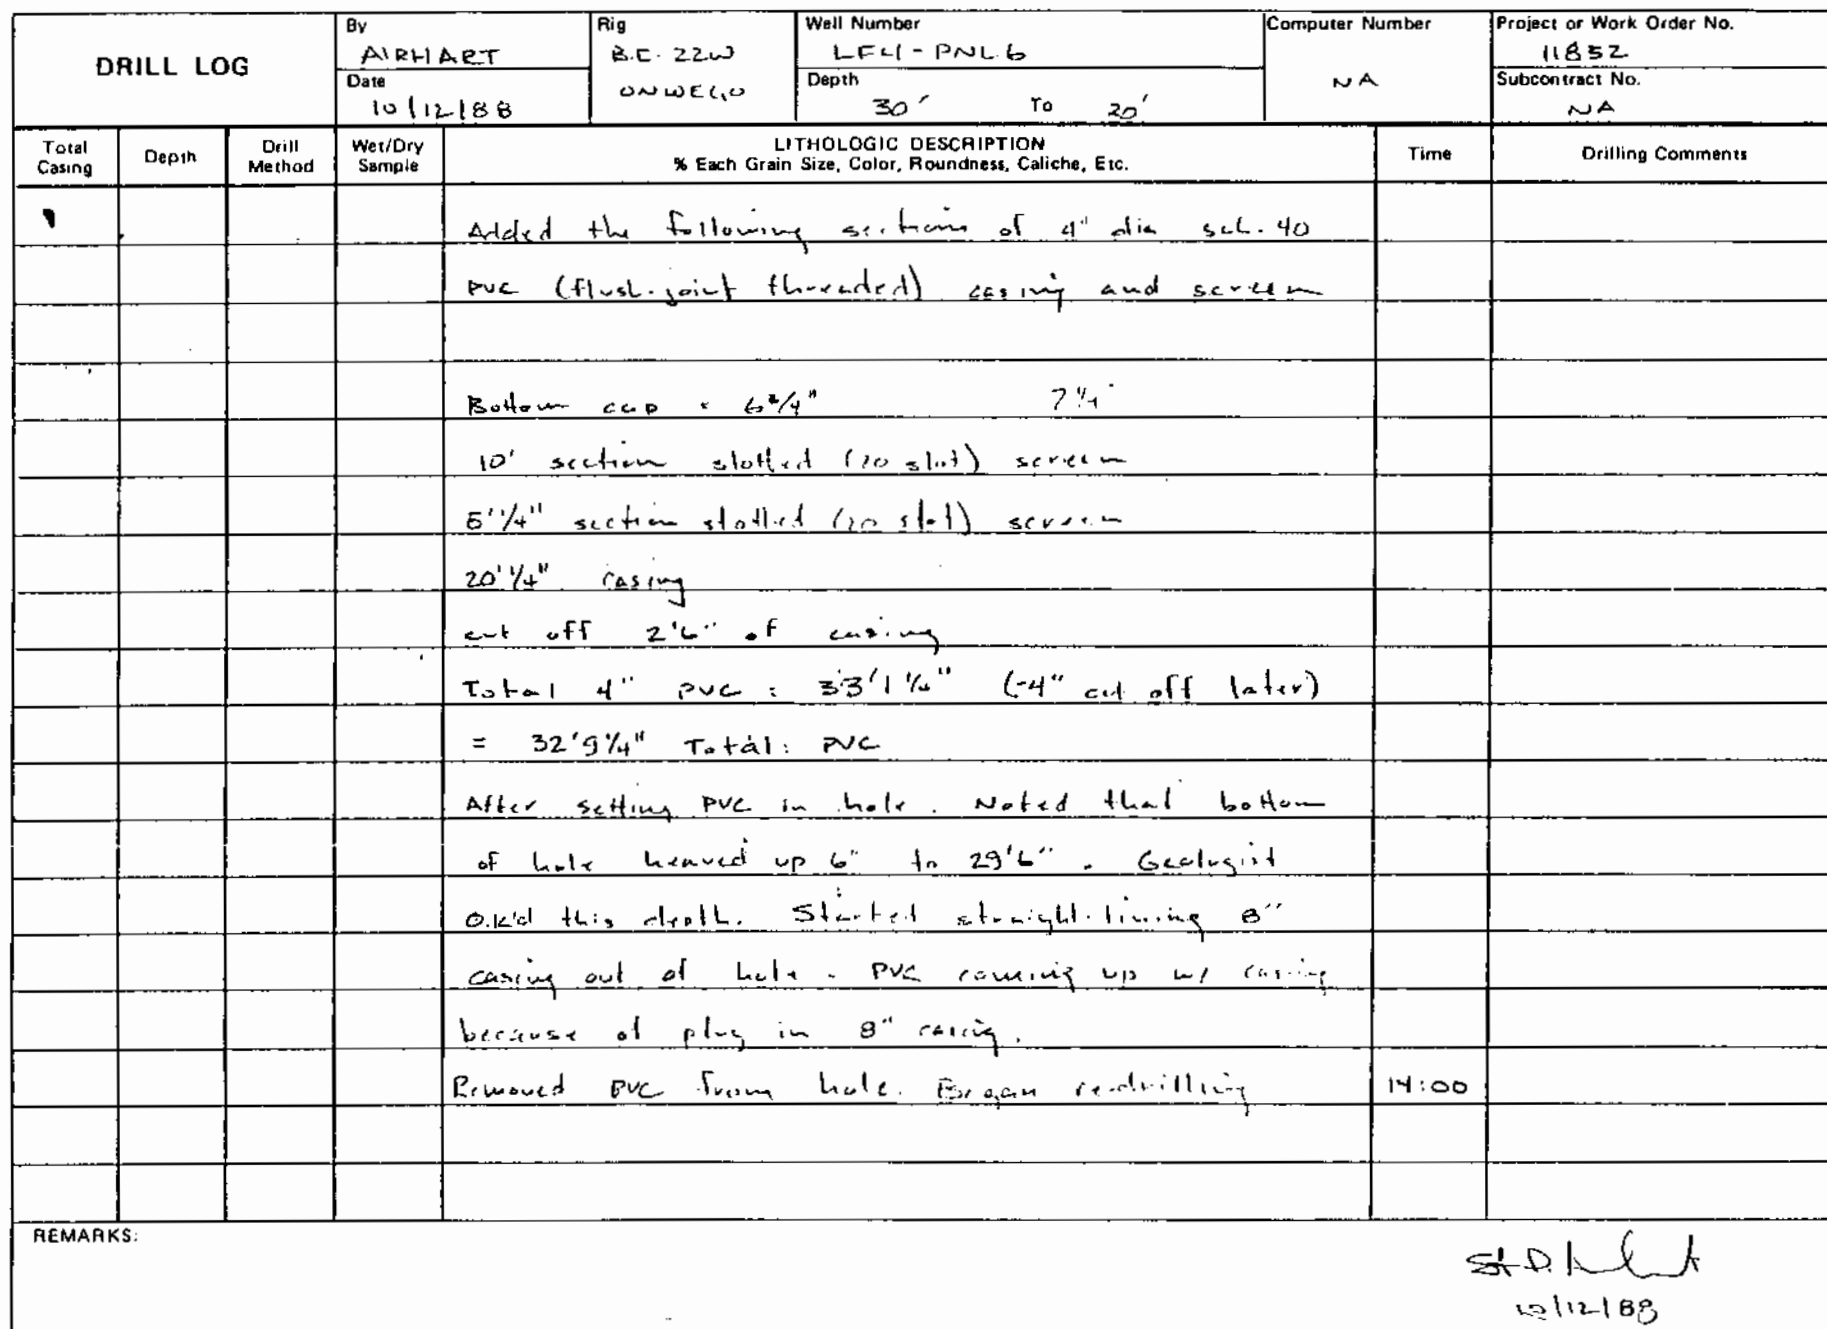 DRILL LOG
By
AIRHART
Date
10/12/88
Rig
B.E. 22W
Well Number
LF4-PNL6
Depth
30' To 20'
Computer Number
NA
Project or Work Order No.
11852
Subcontract No.
NA
Total Casing
Depth
Drill Method
Wet/Dry Sample
LITHOLOGIC DESCRIPTION
% Each Grain Size, Color, Roundness, Caliche, Etc.
Time
Drilling Comments
Added the following sections of 4" dia sch. 40
PVC (flush-joint threaded) casing and screen
Bottom cap = 7 1/4"
10' section slotted (20 slot) screen
5' 1/4" section slotted (20 slot) screen
20' 1/4" casing
cut off 2'6" of casing
Total 4" PVC = 33'1 1/4" (-4" cut off later)
= 32'9 1/4" Total PVC
After setting PVC in hole. Noted that bottom
of hole heaved up 6" to 29'6". Geologist
O.K'd this depth. Started straight-lining 8"
casing out of hole - PVC coming up w/ casing
because of plug in 8" casing.
Removed PVC from hole. Began re-drilling 14:00
REMARKS:
10/12/88